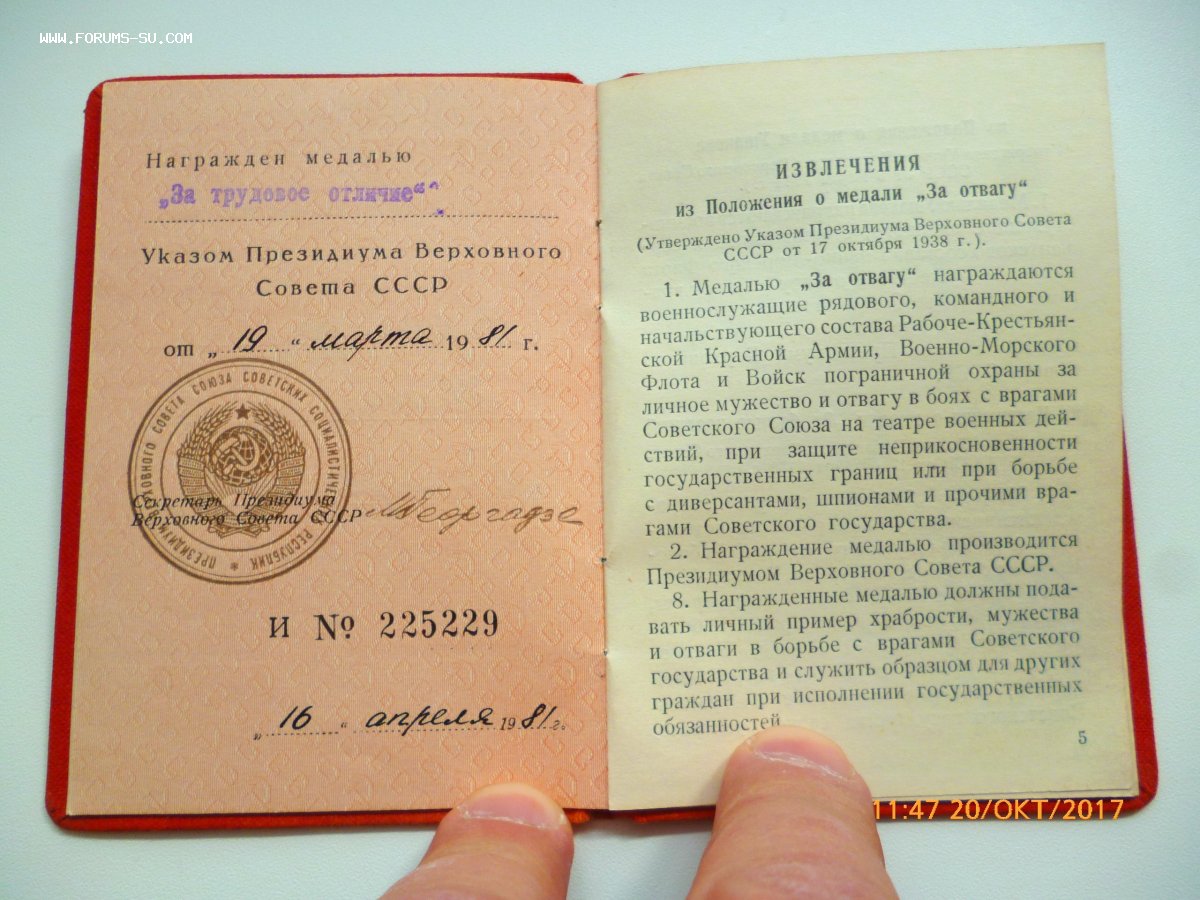 WWW.FORUMS-SU.COM
Награжден медалью
„За трудовое отличие“
Указом Президиума Верховного
Совета СССР
от „ 19 “ марта 1981 г.
ПРЕЗИДИУМ ВЕРХОВНОГО СОВЕТА СОЮЗА СОВЕТСКИХ СОЦИАЛИСТИЧЕСКИХ РЕСПУБЛИК *
Секретарь Президиума
Верховного Совета СССР МГеоргадзе
И № 225229
„ 16 “ апреля 1981 г.
ИЗВЛЕЧЕНИЯ
из Положения о медали „За отвагу“
(Утверждено Указом Президиума Верховного Совета
СССР от 17 октября 1938 г.).
1. Медалью „За отвагу“ награждаются
военнослужащие рядового, командного и
начальствующего состава Рабоче-Крестьян-
ской Красной Армии, Военно-Морского
Флота и Войск пограничной охраны за
личное мужество и отвагу в боях с врагами
Советского Союза на театре военных дей-
ствий, при защите неприкосновенности
государственных границ или при борьбе
с диверсантами, шпионами и прочими вра-
гами Советского государства.
2. Награждение медалью производится
Президиумом Верховного Совета СССР.
8. Награжденные медалью должны пода-
вать личный пример храбрости, мужества
и отваги в борьбе с врагами Советского
государства и служить образцом для других
граждан при исполнении государственных
обязанностей
5
11:47 20/ОКТ/2017